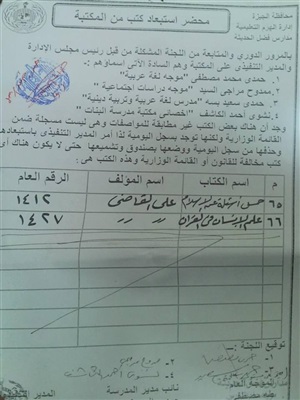 محافظة الجيزة
ادارة الهرم التعليمية
مدارس فضل الحديثة
محضر استبعاد كتب من المكتبة
بالمرور الدوري والمتابعة من اللجنة المشكلة من قبل رئيس مجلس الإدارة
والمدير التنفيذى على المكتبة وهم السادة الأتى اسماؤهم :
١- حمدى محمد مصطفي "موجه لغة عربية"
٢- ممدوح مراجي السيد "موجه دراسات إجتماعية"
٣- حمدى سعيد بسه "مدرس لغة عربية وتربية دينية"
٤- نشوى أحمد الكاشف "اخصائى مكتبة مدرسة البنات"
وجد أن هناك بعض الكتب غير مطابقة للمواصفات وهى ليست مسجلة ضمن
القائمة الوزارية ولكنها توجد بسجل اليومية لذا أمر المدير التنفيذى باستبعادها
وحذفها من سجل اليومية ووضعها بصندوق وتشميعها حتى لا يكون هناك أى
كتب مخالفة للقانون أو القائمة الوزارية وهذه الكتب هى :
م اسم الكتاب اسم المؤلف الرقم العام
٦٥ على القاضى ١٤١٢
٦٦ علم الإنسان فى القرآن ١٤٢٧
توقيع اللجنة :
نائب مدير المدرسة